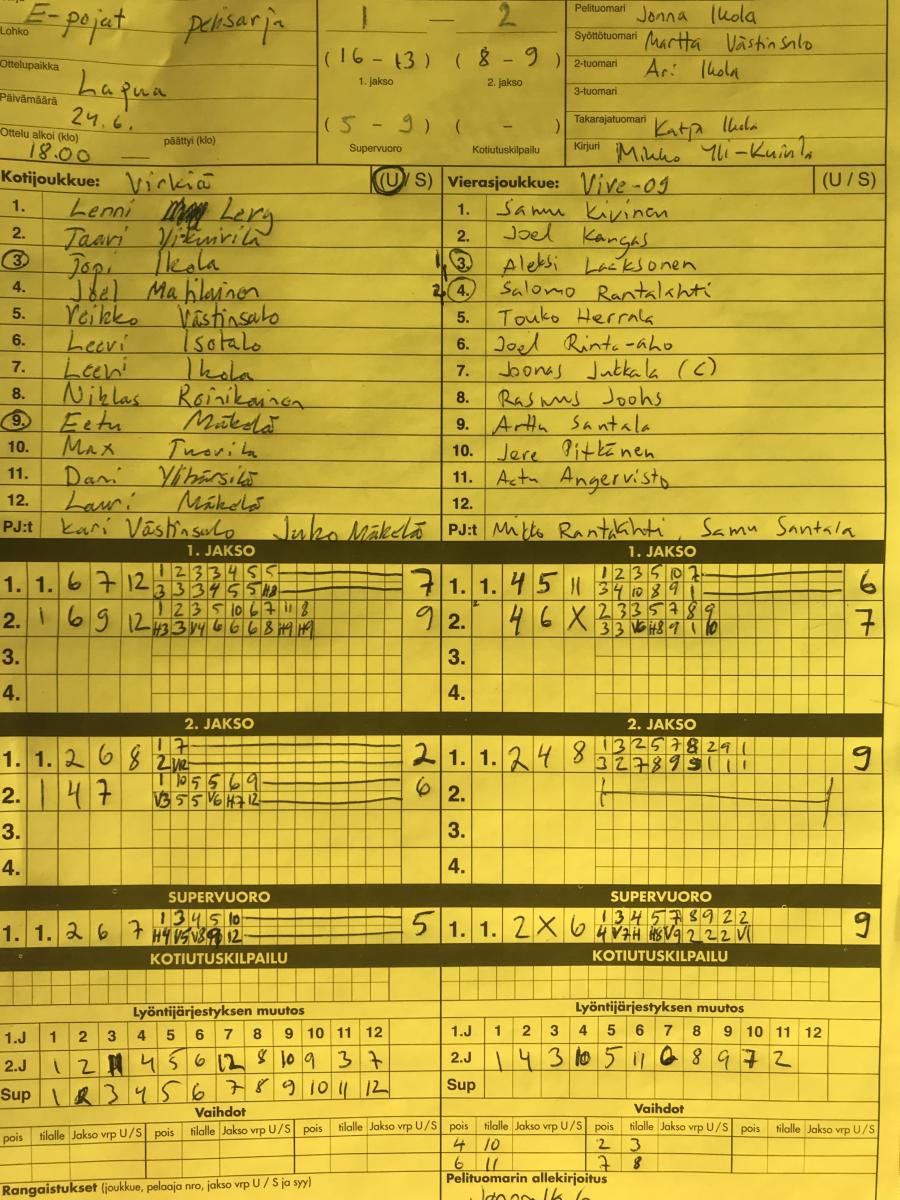 E-pojat pelisarja
Lohko
Ottelupaikka
Lapua
Päivämäärä
24.6.
Ottelu alkoi (klo) päättyi (klo)
18.00 —
1 — 2
( 16 - 13 ) ( 8 - 9 )
1. jakso 2. jakso
( 5 - 9 ) ( - )
Supervuoro Kotiutuskilpailu
Pelituomari Jonna Ikola
Syöttötuomari Martta Västinsalo
2-tuomari Ari Ikola
3-tuomari
Takarajatuomari Katja Ikola
Kirjuri Mikko Yli-Kuivila
Kotijoukkue: Virkiä (U / S)
1. Lenni Lery
2. Taavi
3. Topi Ikola
4. Joel Matilainen
5. Veikko Västinsalo
6. Leevi Isotalo
7. Leevi Ikola
8. Niklas Roinikainen
9. Eetu Mäkelä
10. Max Tuovila
11. Dani
12. Lauri Mäkelä
PJ:t Kari Västinsalo Juho Mäkelä
Vierasjoukkue: Vive-09 (U / S)
1. Samu Kivinen
2. Joel Kangas
1, 3. Aleksi Laaksonen
2, 4. Salomo Rantalahti
5. Touko Herrala
6. Joel Rinta-aho
7. Joonas Jutkala (C)
8. Rasmus Joohs
9. Arttu Santala
10. Jere Pitkänen
11. Aatu Angervisto
12.
PJ:t Mitto Rantalahti, Samu Santala
1. JAKSO
1. 1. 6 7 12 1 2 3 3 4 5 5 7
3 3 3 4 5 5 H8
2. 1 6 9 12 1 2 3 5 10 6 7 11 8 9
H3 3 V4 6 6 6 8 H9 H9
3.
4.
1. JAKSO
1. 1. 4 5 11 1 2 3 5 10 7 6
3 4 10 8 9 1
2. 4 6 X 2 3 3 5 7 8 9 7
3 3 V6 H8 9 1 10
3.
4.
2. JAKSO
1. 1. 2 6 8 1 7 2
2 V12
2. 1 4 7 1 10 5 5 6 9 6
V3 5 5 V6 H7 12
3.
4.
2. JAKSO
1. 1. 2 4 8 1 3 2 5 7 8 2 9 1 9
3 2 7 8 9 9 1 1 1
2.
3.
4.
SUPERVUORO
1. 1. 2 6 7 1 3 4 5 10 5
H4 V5 V8 9 12
SUPERVUORO
1. 1. 2 X 6 1 3 4 5 7 8 9 2 2 9
4 V7 H H8 V9 2 2 2 V1
KOTIUTUSKILPAILU
KOTIUTUSKILPAILU
Lyöntijärjestyksen muutos
1.J 1 2 3 4 5 6 7 8 9 10 11 12
2.J 1 2 11 4 5 6 12 8 10 9 3 7
Sup 1 2 3 4 5 6 7 8 9 10 11 12
Lyöntijärjestyksen muutos
1.J 1 2 3 4 5 6 7 8 9 10 11 12
2.J 1 4 3 10 5 11 6 8 9 7 2
Sup
Vaihdot
pois tilalle Jakso vrp U / S pois tilalle Jakso vrp U / S pois tilalle Jakso vrp U / S
Vaihdot
pois tilalle Jakso vrp U / S pois tilalle Jakso vrp U / S pois tilalle Jakso vrp U / S
4 10 2 3
6 11 7 8
Rangaistukset (joukkue, pelaaja nro, jakso vrp U / S ja syy)
Pelituomarin allekirjoitus